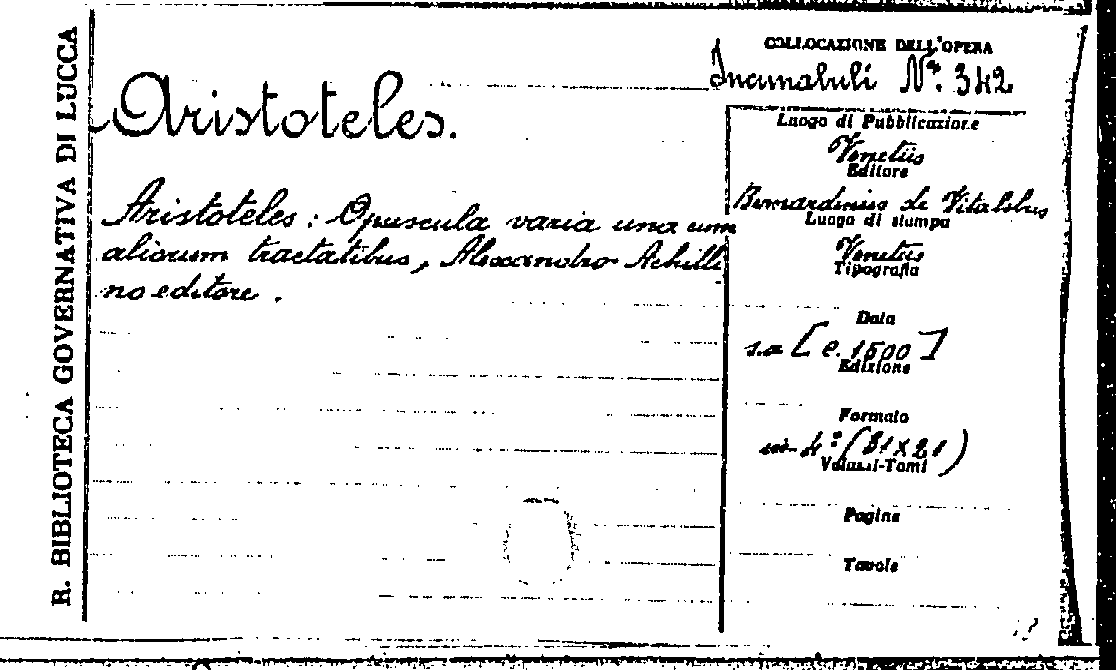 R. BIBLIOTECA GOVERNATIVA DI LUCCA
Aristoteles.
Aristoteles: Opuscula varia una cum
aliorum tractatibus, Alexandro Achilli
no editore.
COLLOCAZIONE DELL'OPERA
Incunabuli N.° 342
Luogo di Pubblicazione
Venetiis
Editore
Bernardinus de Vitalibus
Luogo di stampa
Venetiis
Tipografia
Data
s.a [c. 1500]
Edizione
Formato
in-4° (31x21)
Volumi-Tomi
Pagine
Tavole